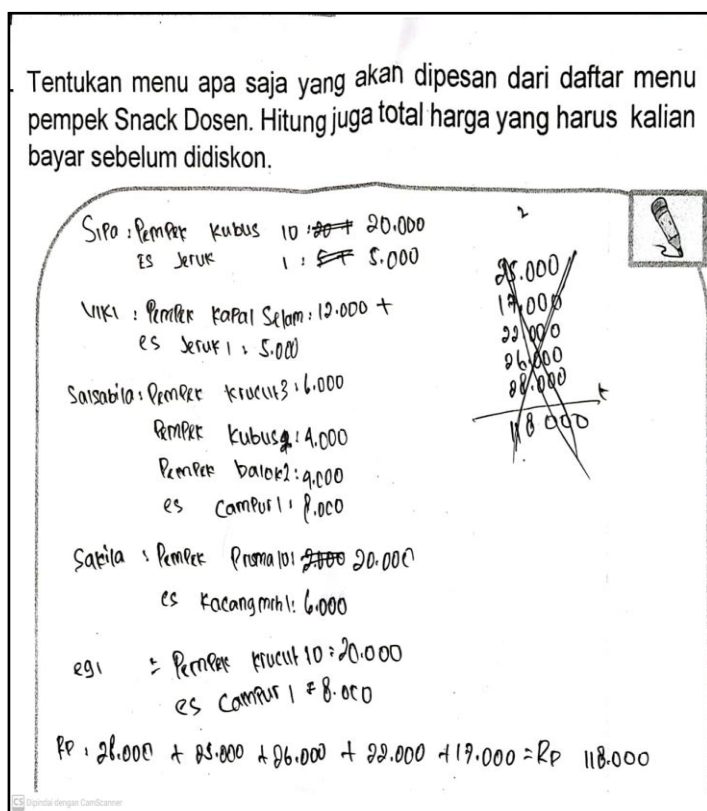 Tentukan menu apa saja yang akan dipesan dari daftar menu
pempek Snack Dosen. Hitung juga total harga yang harus kalian
bayar sebelum didiskon.
Sipa : Pempek kubus 10 : 20.000
Es Jeruk 1 : 5.000
Viki : Pempek kapal selam : 12.000 +
es Jeruk 1 : 5.000
Salsabila : Pempek krucut 3 : 6.000
Pempek kubus 2 : 4.000
Pempek balok 2 : 4.000
es campur 1 : 8.000
Sakila : Pempek Prisma 10 : 20.000
es kacang mrh 1 : 6.000
egi : Pempek krucut 10 : 20.000
es campur 1 : 8.000
Rp : 28.000 + 25.000 + 26.000 + 22.000 + 17.000 = Rp 118.000
2
25.000
17.000
22.000
26.000
28.000 +
118.000
CS Dipindai dengan CamScanner